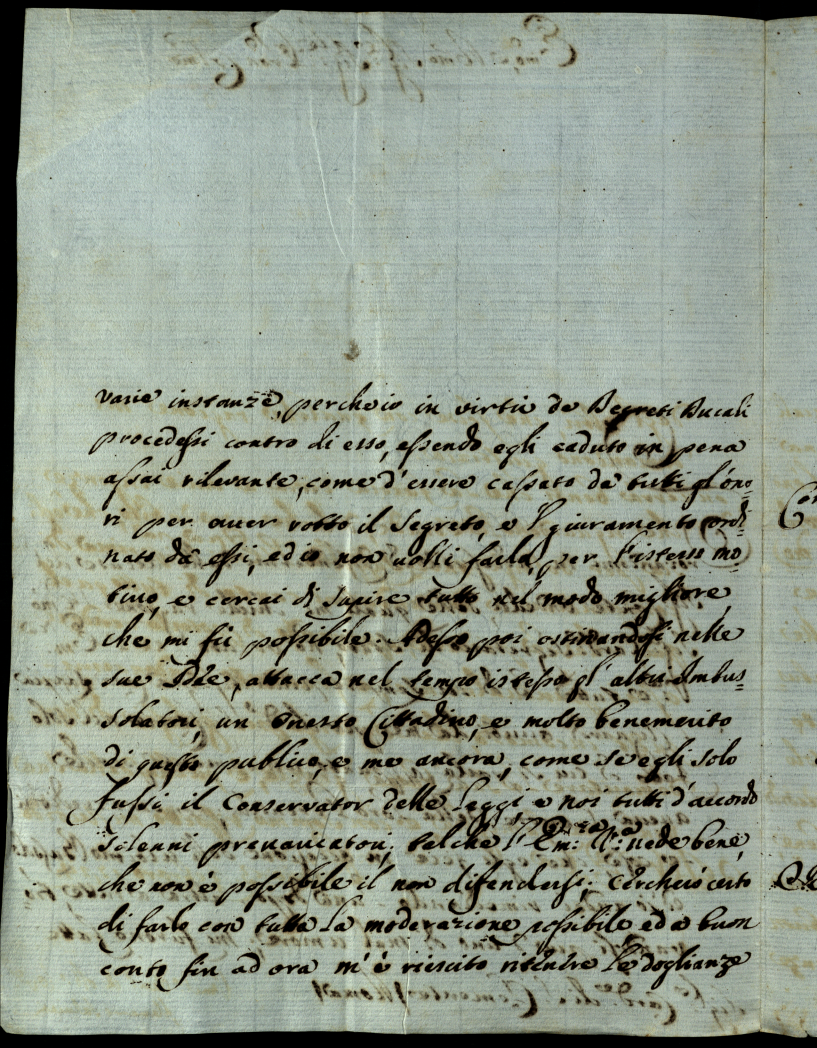 varie instanze, perche io in virtù de Decreti Ducali
procedessi contro di esso, essendo egli caduto in pena
assai rilevante, come d'essere cassato da tutti gl'ono=
ri per aver rotto il Segreto, e l'giuramento ordi=
nato da essi, ed io non volli farlo, per l'istesso mo=
tivo, e cercai di supire tutto nel modo migliore,
che mi fù possibile. Adesso poi ostinandosi nelle
sue Idee, attacca nel tempo istesso gl'altri Imbus=
solatori, un onesto Cittadino, e molto benemerito
di questo publico, e me ancora, come se egli solo
fussi il Conservator delle Leggi, e noi tutti d'accordo
solenni prevaricatori; talche l'Em:za V:a vede bene,
che non è possibile il non difendersi; cercherò certo
di farlo con tutta la moderazione possibile, ed a buon
conto fin ad ora m'è riescito ritenere le doglianze